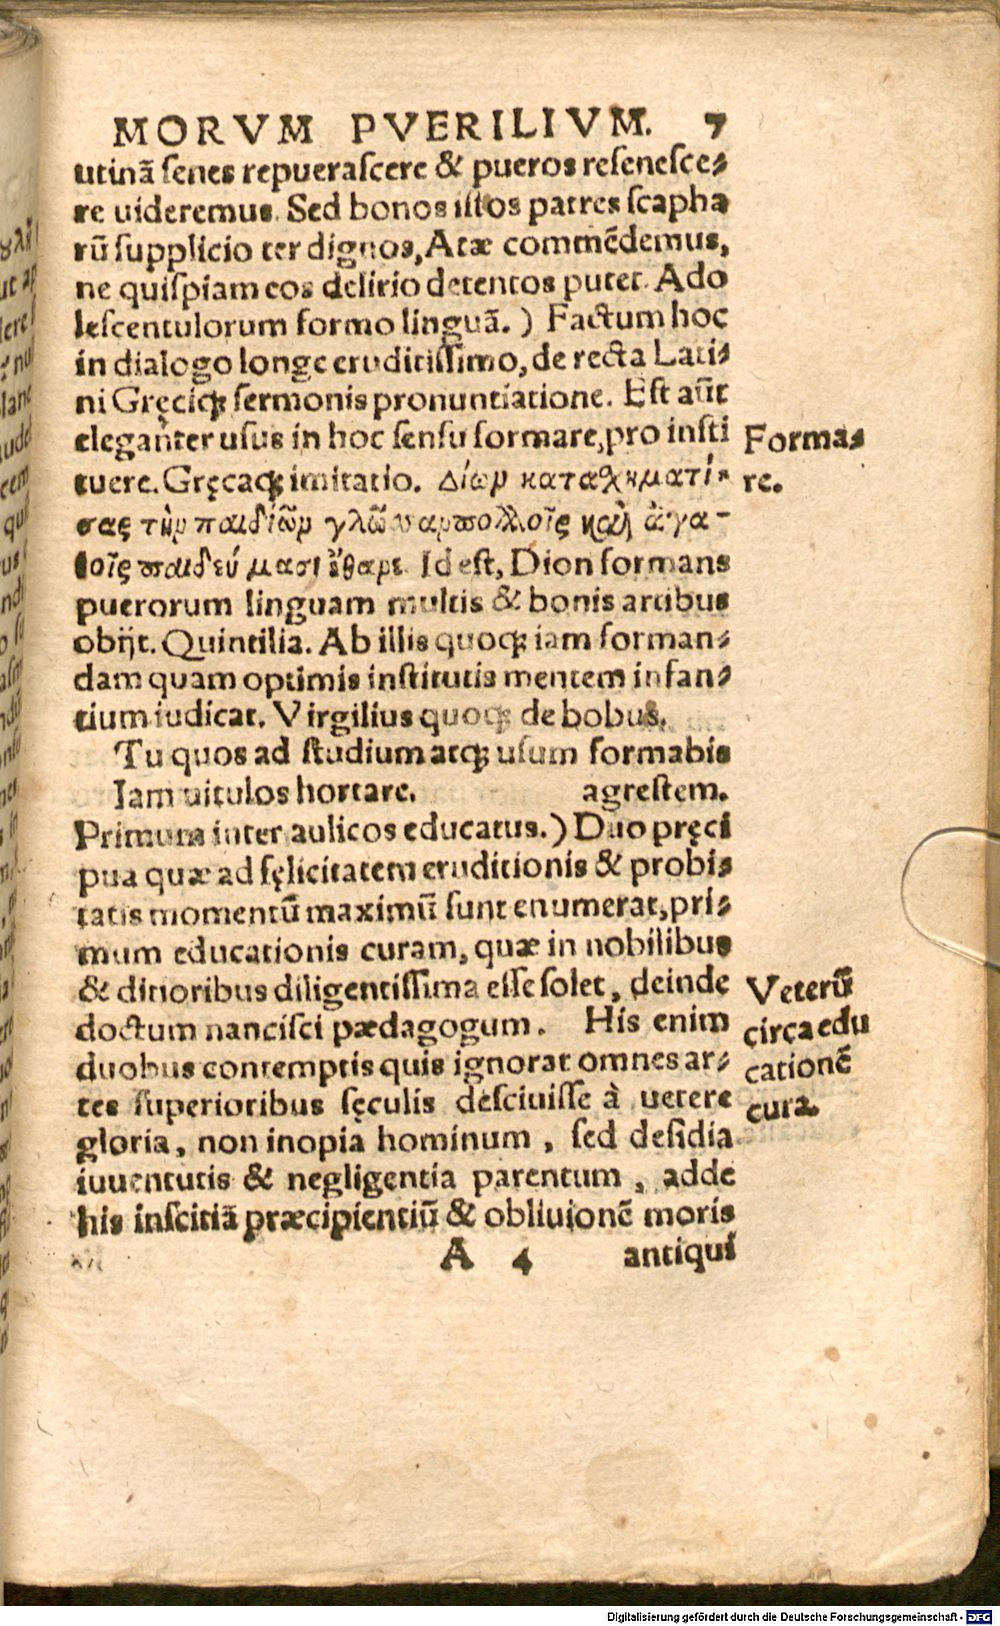 MORVM PVERILIVM. 7
utinã ſenes repueraſcere & pueros reſeneſce⸗
re uideremus. Sed bonos iſtos patres ſcapha
rũ ſupplicio ter dignos, Atæ commẽdemus,
ne quiſpiam eos delirio detentos putet. Ado
leſcentulorum formo linguã. ) Factum hoc
in dialogo longe eruditiſſimo, de recta Lati⸗
ni Gręciq; ſermonis pronuntiatione. Eſt aũt
eleganter uſus in hoc ſenſu formare, pro inſti
Forma⸗
tuere. Gręcaq; imitatio. Δίων
re.
τὴν παιδίων πολλοῖς καὶ ἀγα-
Id eſt, Dion formans
puerorum linguam multis & bonis artibus
obijt. Quintilia. Ab illis quoq; iam forman⸗
dam quam optimis inſtitutis mentem infan⸗
tium iudicat. Virgilius quoq; de bobus.
Tu quos ad ſtudium atq; uſum formabis
Iam uitulos hortare. agreſtem.
Primum inter aulicos educatus. ) Duo pręci
pua quæ ad fęlicitatem eruditionis & probi⸗
tatis momentũ maximũ ſunt enumerat, pri⸗
mum educationis curam, quæ in nobilibus
& ditioribus diligentiſſima eſſe ſolet, deinde
Veterũ
doctum nanciſci pædagogum. His enim
circa edu
duobus contemptis quis ignorat omnes ar⸗
cationẽ
tes ſuperioribus ſęculis deſciuiſſe à uetere
cura.
gloria, non inopia hominum, ſed deſidia
iuuentutis & negligentia parentum, adde
his inſcitiã præcipientiũ & obliuionẽ moris
A 4 antiqui
Digitalisierung gefördert durch die Deutsche Forschungsgemeinschaft - DFG